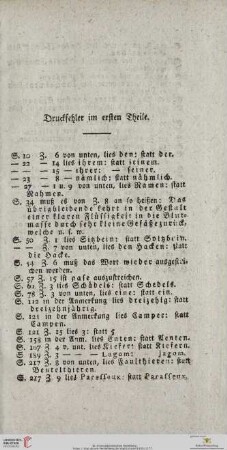 Druckfehler im ersten Theile.
S. 10 Z. 6 von unten, lies den: statt der.
— 22 — 14 lies ihrem: statt seinem.
— — — 15 — ihrer: — seiner.
— 23 — 8 — nämlich: statt nähmlich.
— 27 — 1 u. 9 von unten, lies Namen: statt
Nahmen.
S. 34 muß es von Z. 8 an so heißen: Das
übrigbleibende kehrt in der Gestalt
einer klaren Flüssigkeit in die Blut-
masse durch sehr kleine Gefäße zurück,
welche u. s. w.
S. 50 Z. 1 lies Sitzbein: statt Sotzbein.
— — Z. 7 von unten, lies den Hacken: statt
die Hacke.
S. 54 Z. 6 muß das Wort wieder ausgestri-
chen werden.
S. 57 Z. 15 ist das auszustreichen.
S. 69 Z. 3 lies Schädels: statt Schedels.
S. 78 Z. 3 von unten, lies eine: statt ein.
S. 112 in der Anmerkung lies dreizehig: statt
dreizehnjährig.
S. 121 in der Anmerkung lies Camper: statt
Campen.
S. 121 Z. 25 lies 3: statt 5
S. 158 in der Anm. lies Enten: statt Aenten.
S. 107 Z. 4 v. unt. lies Kiefer: statt Kiefern.
S. 189 Z. 3 — — Lagam: — jagam.
S. 217 Z. 8 von unten, lies Faulthieren: statt
Beutelthieren.
S. 217 Z. 9 lies Larofloux: statt Larafloux.